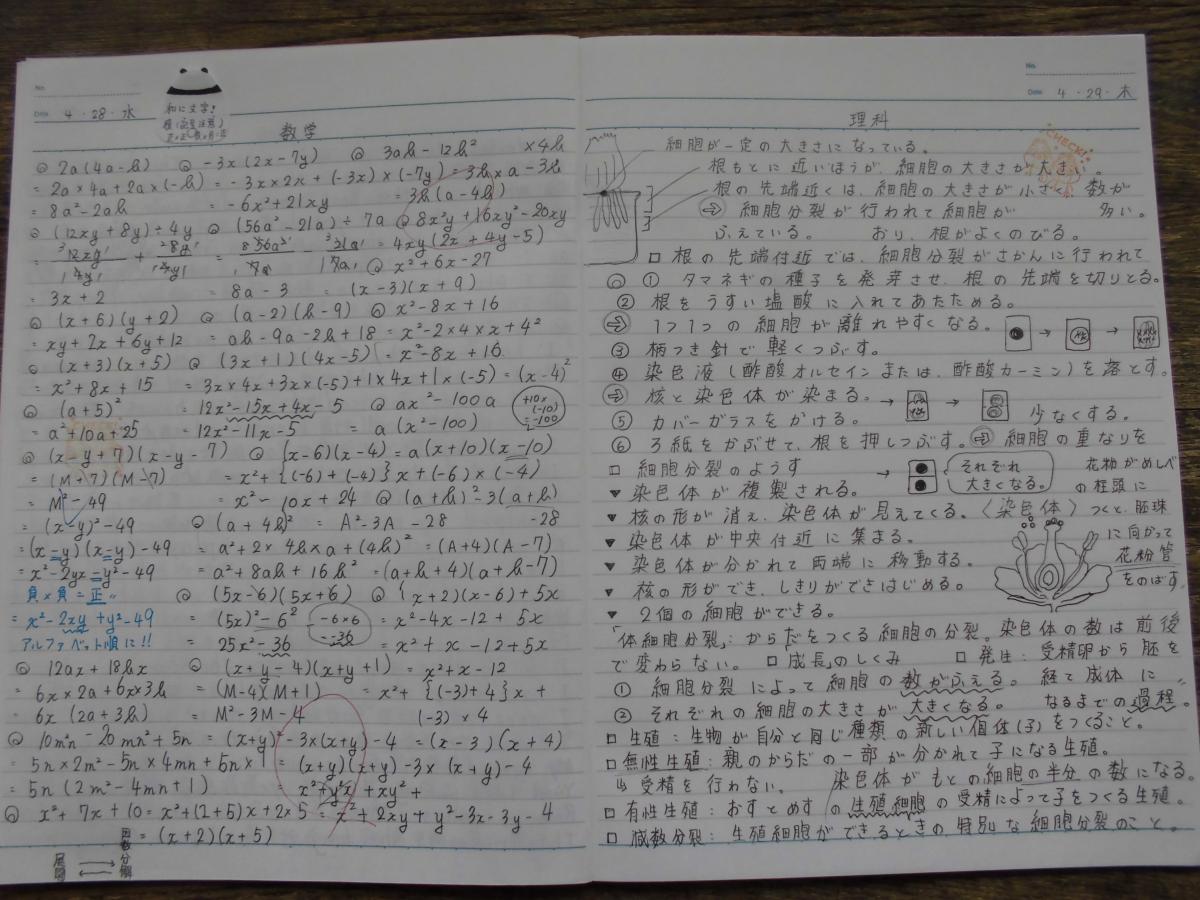 No.
Date 4・28・水
和に文字!
数学
◎ 2a(4a-b) ◎ -3x(2x-7y) ◎ 3ab-12b² ×4b
= 2a×4a+2a×(-b) = -3x×2x+(-3x)×(-7y) = 3b×a-3b
= 8a²-2ab = -6x²+21xy = 3b(a-4b)
◎ (12xy+8y)÷4y ◎ (56a²-21a)÷7a ◎ 8x²y+16xy²-20xy
= 4xy(2x+4y-5)
◎ x²+6x-27
= 3x+2 = 8a-3 = (x-3)(x+9)
◎ (x+6)(y+2) ◎ (a-2)(b-9) ◎ x²-8x+16
= xy+2x+6y+12 = ab-9a-2b+18 = x²-2×4×x+4²
◎ (x+3)(x+5) ◎ (3x+1)(4x-5) = x²-8x+16
= x²+8x+15 = 3x×4x+3x×(-5)+1×4x+1×(-5) = (x-4)²
◎ (a+5)² = 12x²-15x+4x-5 ◎ ax²-100a +10× (-10) =-100
= a²+10a+25 = 12x²-11x-5 = a(x²-100)
◎ (x-y+7)(x-y-7) ◎ (x-6)(x-4) = a(x+10)(x-10)
= (M+7)(M-7) = x²+{(-6)+(-4)}x+(-6)×(-4)
= M²-49 = x²-10x+24 ◎ (a+b)²-3(a+b)
= (x-y)²-49 ◎ (a+4b)² = A²-3A-28 -28
= (x-y)(x-y)-49 = a²+2×4b×a+(4b)² = (A+4)(A-7)
= x²-2yx-y²-49 = a²+8ab+16b² = (a+b+4)(a+b-7)
負×負=正 ◎ (5x-6)(5x+6) ◎ (x+2)(x-6)+5x
= x²-2xy+y²-49 = (5x)²-6² -6×6 =-36 = x²-4x-12+5x
アルファベット順に!! = 25x²-36 = x²+x-12+5x
◎ 12ax+18bx ◎ (x+y-4)(x+y+1) = x²+x-12
= 6x×2a+6x×3b = (M-4)(M+1) = x²+{(-3)+4}x+
= 6x(2a+3b) = M²-3M-4 (-3)×4
◎ 10m²n-20mn²+5n = (x+y)²-3×(x+y)-4 = (x-3)(x+4)
= 5n×2m²-5n×4mn+5n×1 = (x+y)(x+y)-3×(x+y)-4
= 5n(2m²-4mn+1) x²+y²x+xy²+
◎ x²+7x+10=x²+(2+5)x+2×5 = x²+2xy+y²-3x-3y-4
= (x+2)(x+5)
展開 因数分解
No.
Date 4・29・木
理科
CHECK!
細胞が一定の大きさになっている。
根もとに近いほうが、細胞の大きさが大きい。
根の先端近くは、細胞の大きさが小さく、数が
⇨ 細胞分裂が行われて細胞が 多い。
ふえている。 おり、根がよくのびる。
□ 根の先端付近では、細胞分裂がさかんに行われて
◎ ① タマネギの種子を発芽させ、根の先端を切りとる。
② 根をうすい塩酸に入れてあたためる。
⇨ 1つ1つの細胞が離れやすくなる。
③ 柄つき針で軽くつぶす。
④ 染色液(酢酸オルセインまたは、酢酸カーミン)を落とす。
⇨ 核と染色体が染まる。
⑤ カバーガラスをかける。 少なくする。
⑥ ろ紙をかぶせて、根を押しつぶす。⇨ 細胞の重なりを
□ 細胞分裂のようす それぞれ大きくなる。 花粉がめしべ
▼ 染色体が複製される。 の柱頭に
▼ 核の形が消え、染色体が見えてくる。〈染色体〉つくと、胚珠
▼ 染色体が中央付近に集まる。 に向かって
▼ 染色体が分かれて両端に移動する。 花粉管
▼ 核の形ができ、しきりができはじめる。 をのばす。
▼ 2個の細胞ができる。
「体細胞分裂」:からだをつくる細胞の分裂。染色体の数は前後
で変わらない。 □ 成長のしくみ □ 発生:受精卵から胚を
① 細胞分裂によって細胞の数がふえる。 経て成体に
② それぞれの細胞の大きさが大きくなる。 なるまでの過程。
□ 生殖:生物が自分と同じ種類の新しい個体(子)をつくること。
□ 無性生殖:親のからだの一部が分かれて子になる生殖。
↳ 受精を行わない。 染色体がもとの細胞の半分の数になる。
□ 有性生殖:おすとめすの生殖細胞の受精によって子をつくる生殖。
□ 減数分裂:生殖細胞ができるときの特別な細胞分裂のこと。